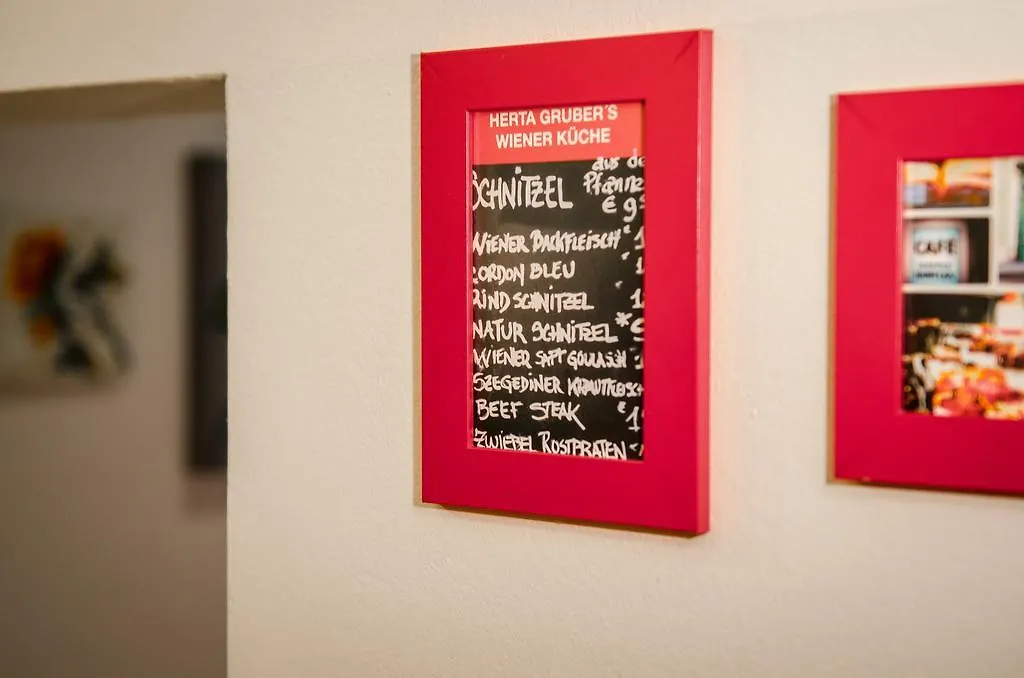 HERTA GRUBER'S
WIENER KÜCHE
SCHNITZEL aus de
Pfanne
€ 9
WIENER BACKFLEISCH € 1
CORDON BLEU 1
RINDSCHNITZEL 1
NATUR SCHNITZEL *
WIENER SAFT GOULASCH
SZEGEDINER KRAUTFLEISCH
BEEF STEAK € 1
ZWIEBEL ROSTPRATEN
CAFÉ